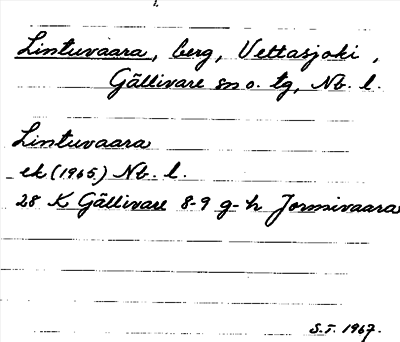 Lintuvaara, berg, Vettasjoki,
Gällivare sn o. tg, Nb. l.
Lintuvaara
ek (1965) Nb. l.
28 K Gällivare 8-9 g-h Jormivaara
S.T. 1967.